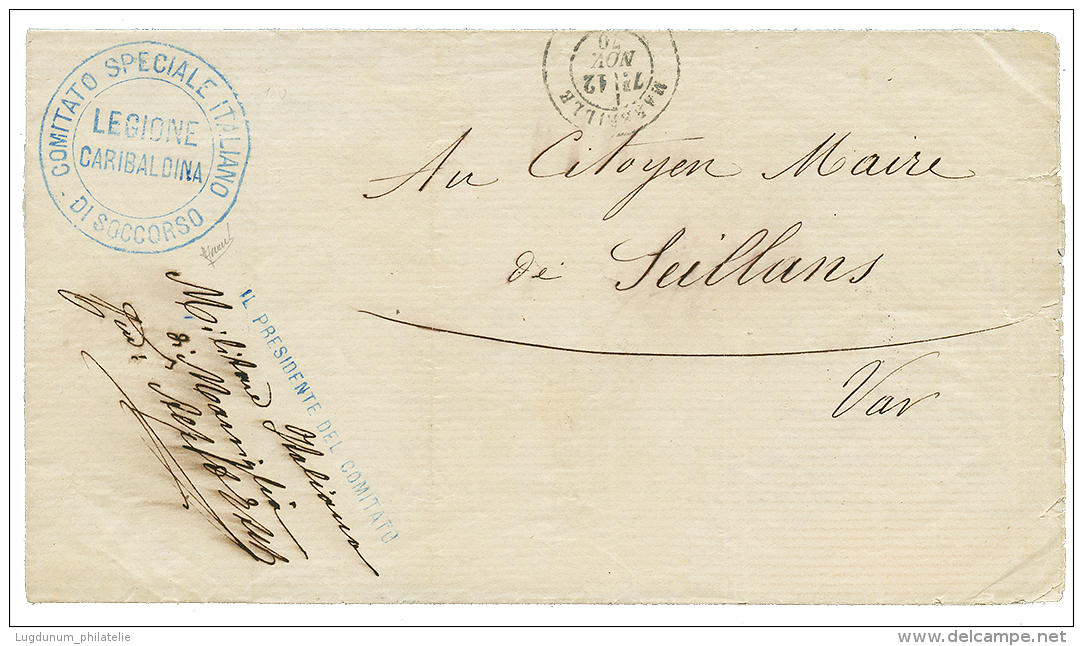 COMITATO SPECIALE ITALIANO
DI SOCCORSO
LEGIONE
CARIBALDINA
MARSEILLE
7E 12
NOV
70
Au Citoyen Maire
de Seillans
Var
IL PRESIDENTE DEL COMITATO
Militare Italiano
di Marsiglia
Lugdunum_philatelie
www.delcampe.net